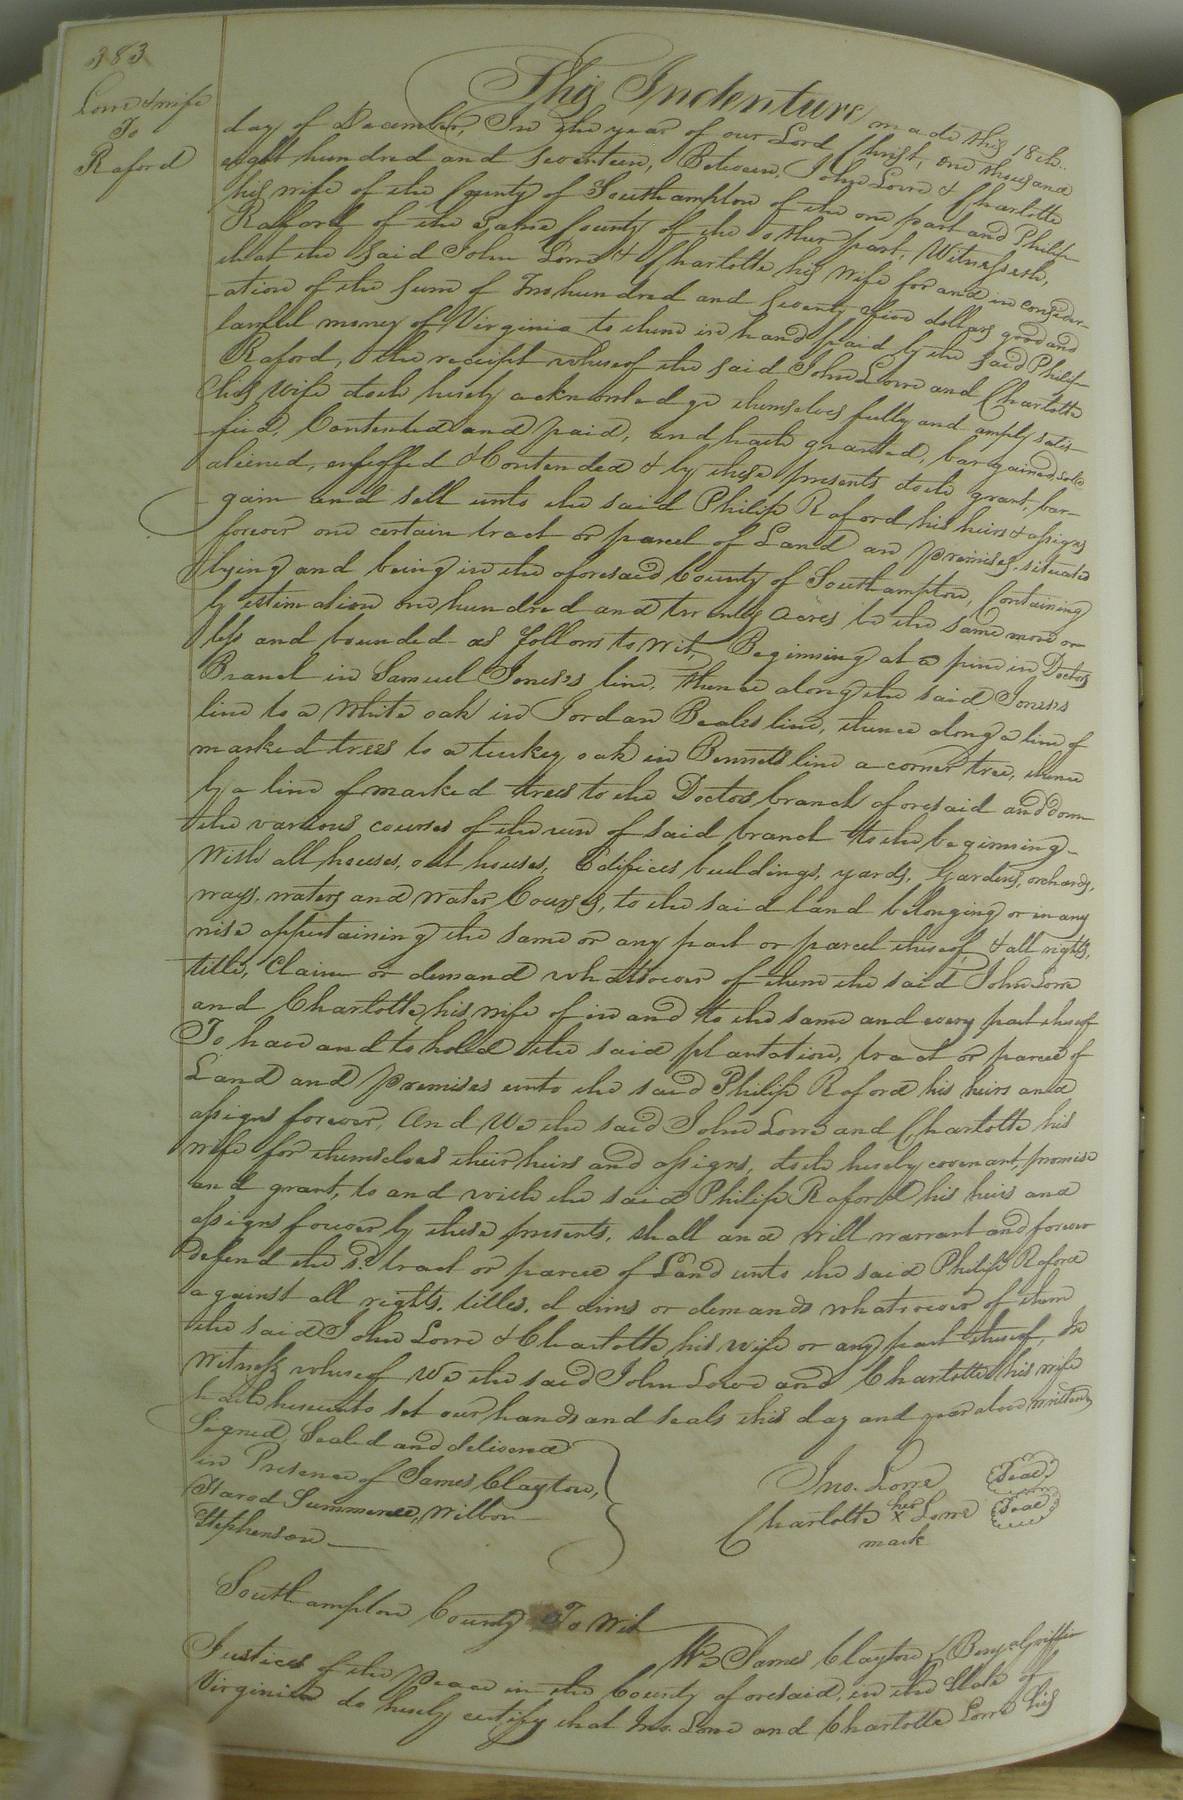 383
Lowe & wife
To
Raford
This Indenture made this 18th
day of December, In the year of our Lord Christ, one thousand
eight hundred and seventeen, Between, John Lowe & Charlotte
his wife of the County of Southampton of the one part and Philip
Raford of the Same County of the other part, Witnesseth,
that the said John Lowe & Charlotte his Wife for and in consider-
-ation of the sum of Two hundred and seventy five dollars good and
lawful money of Virginia to them in hand paid by the said Philip
Raford, the receipt whereof the said John Lowe and Charlotte
his Wife doth hereby acknowledge themselves fully and amply satis-
-fied, Contented and paid, and hath granted, bargained, sold
aliened, enfeoffed & Contended & by these presents doth grant, bar-
gain and sell unto the said Philip Raford his heirs & assigns
forever one certain tract or parcel of Land an premises situated
lying and being in the aforesaid County of Southampton, Containing
by estimation one hundred and twenty acres be the same more or
less and bounded as follows to wit, Beginning at a pine in Doctors
Branch in Samuel Jones's line, thence along the said Jones's
line to a White oak in Jordan Beales line, thence along a line of
marked trees to a turkey oak in Bennetts line a corner tree, thence
by a line of marked trees to the Doctors branch aforesaid and down
the various courses of the run of said branch to the beginning-
With all houses, out houses, Edifices buildings, yards, Gardens, orchards,
ways, waters and Water Courses, to the said land belonging or in any
wise appertaining the same or any part or parcel thereof & all rights,
title, Claim or demand whatsoever of them the said John Lowe
and Charlotte his wife of in and to the same and every part thereof
To have and to hold the said plantation, tract or parcel of
Land and premises unto the said Philip Raford his heirs and
assigns forever, And We the said John Lowe and Charlotte his
wife for themselves their heirs and assigns, doth hereby covenant, promise
and grant, to and with the said Philip Raford his heirs and
assigns forever by these presents, shall and will warrant and forever
defend the sd tract or parcel of Land unto the said Philip Raford
against all rights, titles, claims or demands whatsoever of them
the said John Lowe & Charlotte his wife or any part thereof, In
Witness whereof We the said John Lowe and Charlotte his wife
hath hereunto set our hands and seals this day and year above written
Signed, Sealed and delivered
in Presence of James Clayton,
Harod Summerell, Wilbon
Stephenson
Jno. Lowe Seal
Charlotte her x Lowe Seal
mark
Southampton County To Wit
We James Clayton & Benja Griffin
Justices of the peace in the County aforesaid, in the State of
Virginia do hereby certify that Jno. Lowe and Charlotte Lowe his